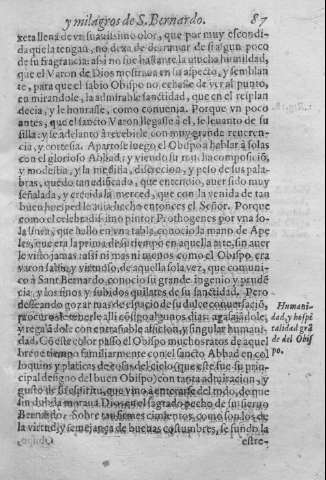 y milagros de S. Bernardo. 87
xeta llena de vn suauissimo olor, que por muy escondi-
da que la tengan, no dexa de derramar de si algun poco
de su fragrancia: assi no fue bastante la mucha humildad,
que el Varon de Dios mostraua en su aspecto, y semblan
te, para que el sabio Obispo no echasse de ver al punto,
en mirandole, la admirable sanctidad, que en el resplan
decia, y le honrasse, como conuenia. Porque vn poco
antes, que el sancto Varon llegasse à el, se leuanto de su
silla: y se adelanto à recebirle con muy grande reueren-
cia, y cortesia. Apartose luego el Obispo a hablar à solas
con el glorioso Abbad: y viendo su mucha composició,
y modestia, y la medida, discrecion, y peso de sus pala-
bras, quedo tan edificado, que entendio, auer sido muy
señalada, y crecida la merced, que con la venida de tan
buen huesped le auia hecho entonces el Señor. Porque
como el celebradissimo pintor Prothogenes por vna so-
la linea, que hallo en vna tabla, conocio la mano de Ape
les, que era la prima de su tiempo en aquella arte, sin auer
le visto jamas: assi ni mas ni menos como el Obispo era
varon sabio, y virtuoso, de aquella sola vez, que comuni-
co à Sant Bernardo, conocio su grande ingenio y pruden
cia, y los finos y subidos quilates de su sanctidad. Pero
desseando gozar mas de espacio de su dulce conuersació,
procuro tenerle alli consigo algunos dias: agasajandole,
y regaládole con entrañable aficion, y singular humani-
dad. Có este color passo el Obispo muchos ratos de aquel
breue tiempo familiarmente con el sancto Abbad en col
loquios y platicas de cosas del cielo,
Bernardo. Sobre tan firmes cimientos, como son los de
la virtud, y semejança de buenas costumbres, se fundo la
estre-
Humani-
dad, y hospi
talidad grá
de del Obis
po.